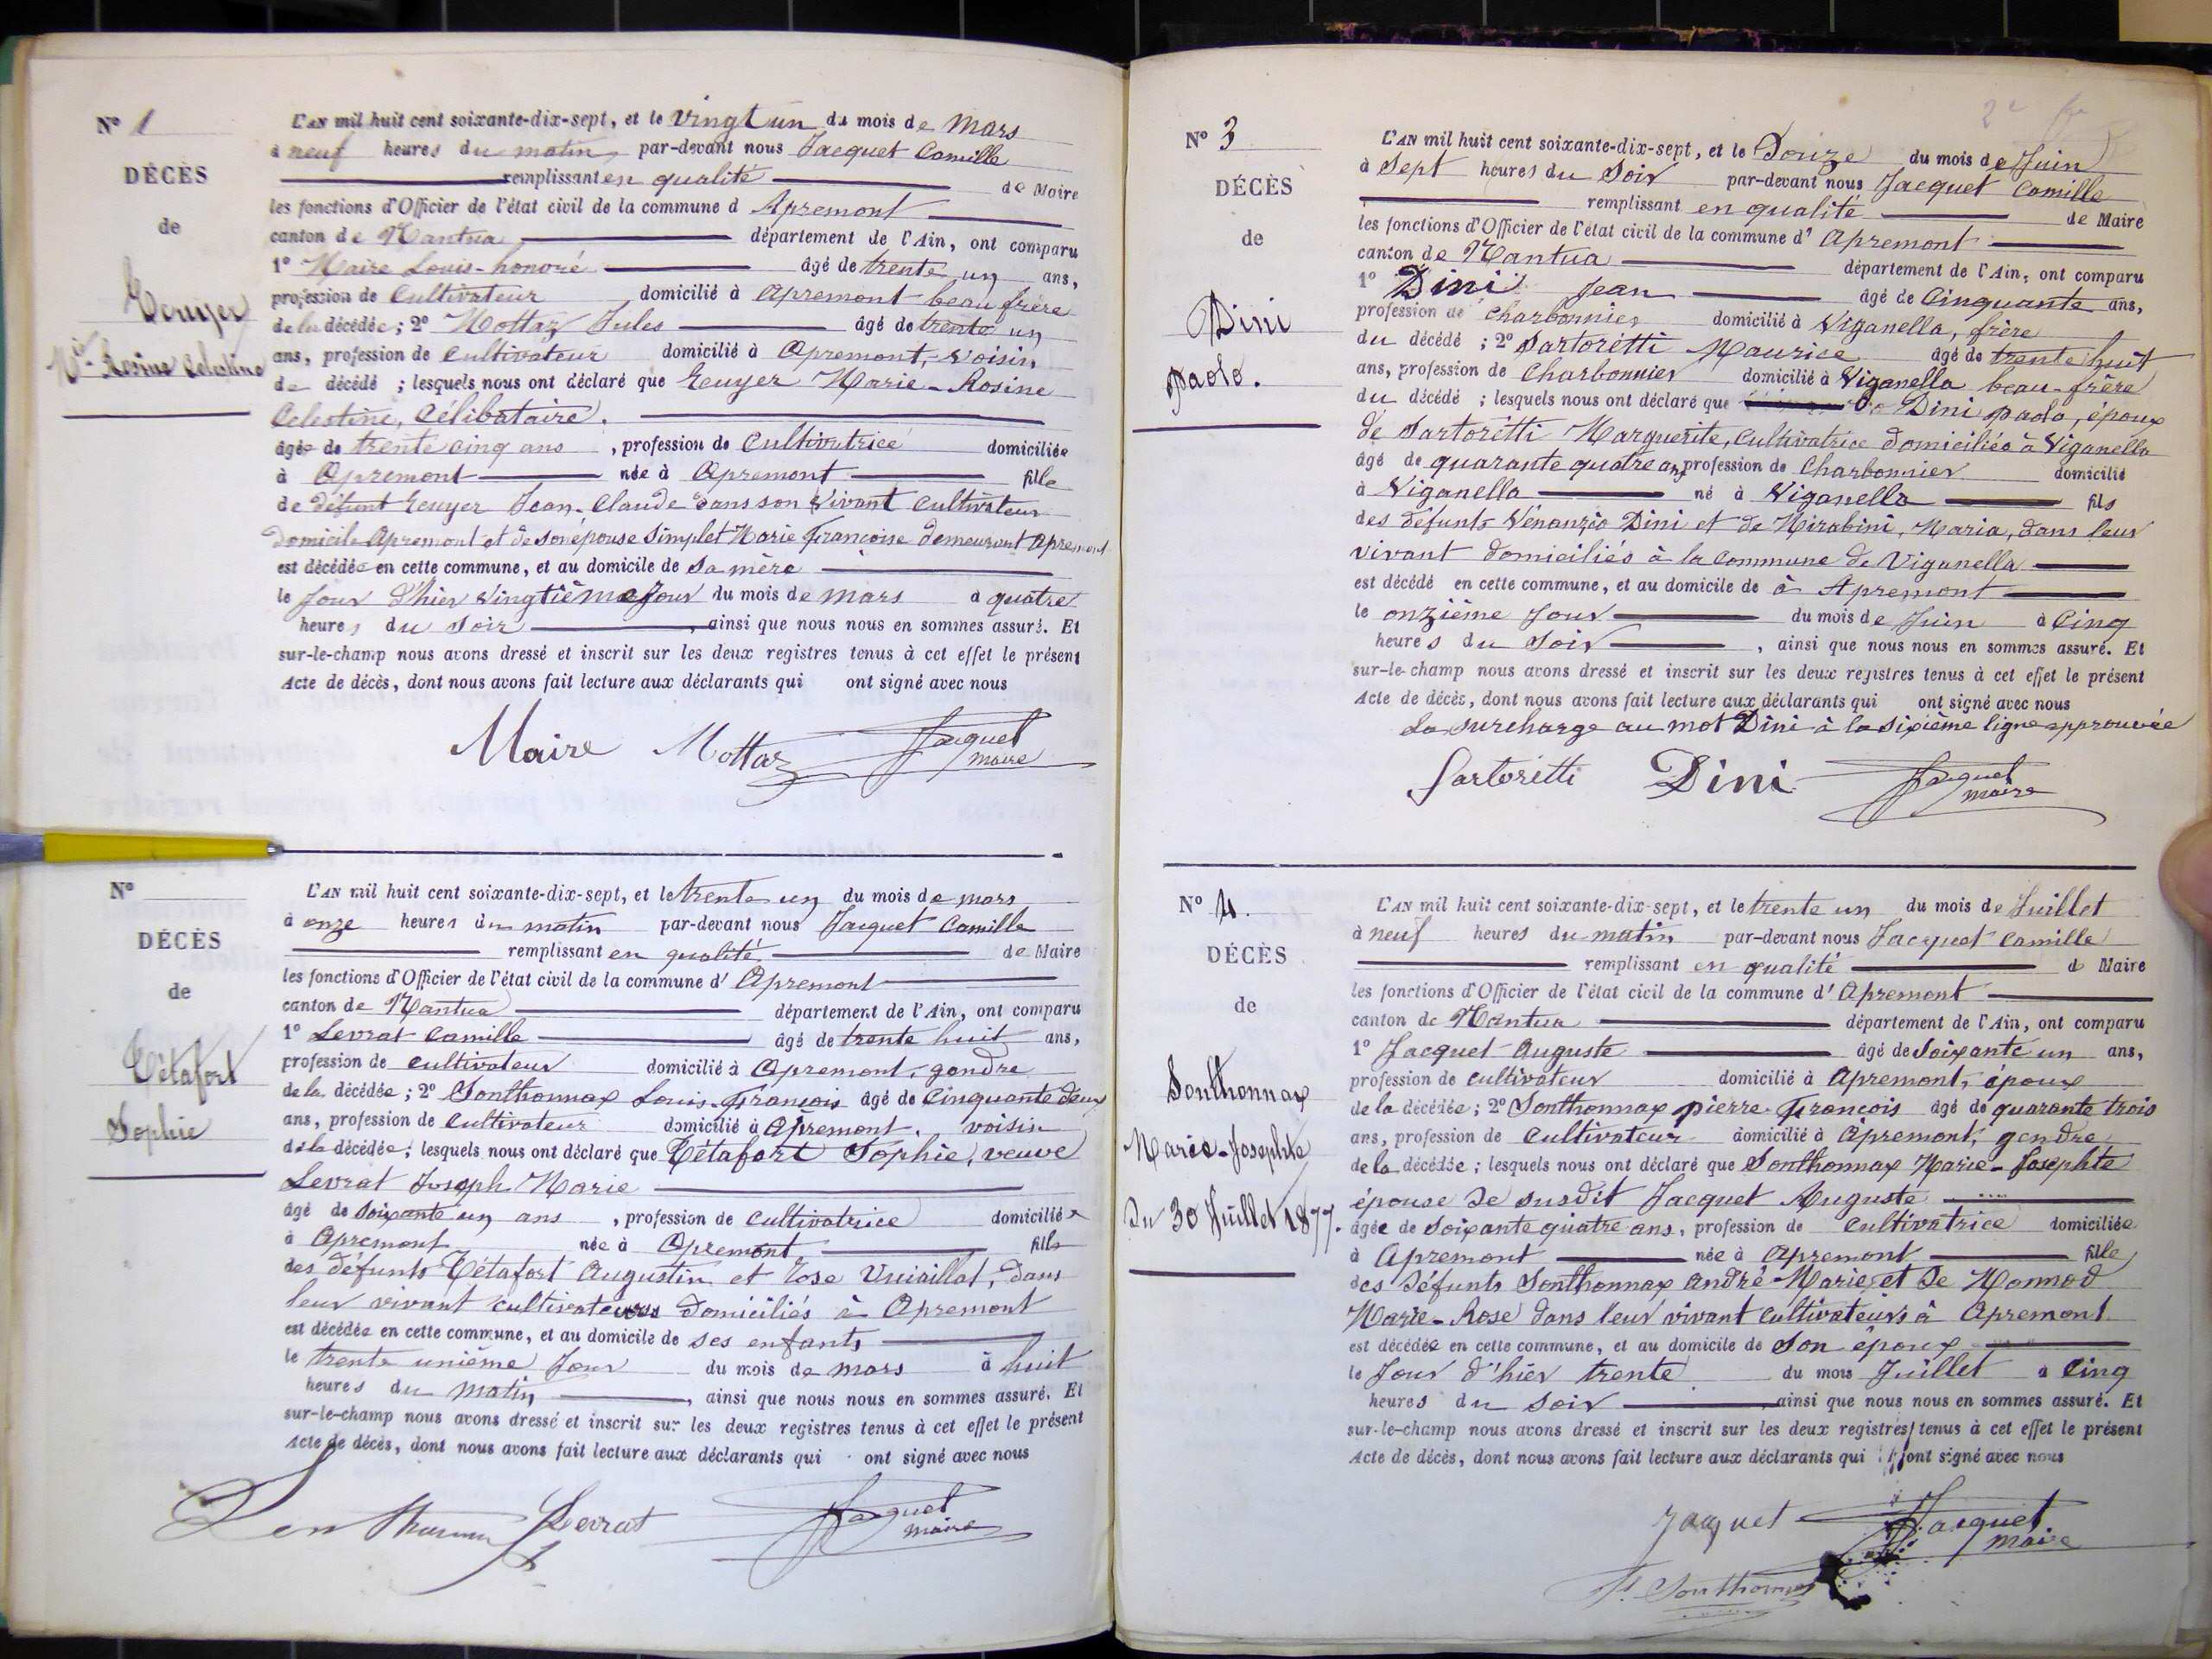 N° 1
DÉCÈS
de
Ecuyer
Mie-Rosine Celestine
L'AN mil huit cent soixante-dix-sept, et le vingt un du mois de mars
à neuf heures du matin, par-devant nous Jacquet Camille
remplissant en qualité de Maire
les fonctions d'Officier de l'état civil de la commune d Apremont
canton de Nantua département de l'Ain, ont comparu
1° Maire Louis-honoré âgé de trente un ans,
profession de Cultivateur domicilié à Apremont beau frère
de la décédée; 2° Mottaz Jules âgé de trente un
ans, profession de Cultivateur domicilié à Apremont, voisin
de décédé ; lesquels nous ont déclaré que Ecuyer Marie-Rosine
Celestine, Célibataire.
âgée de trente cinq ans , profession de Cultivatrice domiciliée
à Apremont née à Apremont fille
de défunt Ecuyer Jean-Claude dans son vivant Cultivateur
domicile Apremont et de son épouse Simplet Marie Françoise demeurant Apremont
est décédée en cette commune, et au domicile de sa mère
le jour d'hier vingtième jour du mois de mars à quatre
heures du soir , ainsi que nous nous en sommes assuré. Et
sur-le-champ nous avons dressé et inscrit sur les deux registres tenus à cet effet le présent
Acte de décès, dont nous avons fait lecture aux déclarants qui ont signé avec nous
Maire Mottaz Jacquet
maire
N°
DÉCÈS
de
Tétafort
Sophie
L'AN mil huit cent soixante-dix-sept, et le trente un du mois de mars
à onze heures du matin par-devant nous Jacquet Camille
remplissant en qualité de Maire
les fonctions d'Officier de l'état civil de la commune d' Apremont
canton de Nantua département de l'Ain, ont comparu
1° Levrat Camille âgé de trente huit ans,
profession de cultivateur domicilié à Apremont, gendre
de la décédée; 2° Sonthonnax Louis-François âgé de Cinquante deux
ans, profession de Cultivateur domicilié à Apremont, voisin
de la décédée; lesquels nous ont déclaré que Tétafort Sophie, veuve
Levrat Joseph Marie
âgé de soixante un ans , profession de Cultivatrice domiciliée
à Apremont née à Apremont fille
des défunts Tétafort Augustin et Rose Vuiaillat, dans
leur vivant cultivateurs domiciliés à Apremont
est décédée en cette commune, et au domicile de ses enfants
le trente unième jour du mois de mars à huit
heures du matin , ainsi que nous nous en sommes assuré. Et
sur-le-champ nous avons dressé et inscrit sur les deux registres tenus à cet effet le présent
Acte de décès, dont nous avons fait lecture aux déclarants qui ont signé avec nous
Levrat Jacquet
maire
N° 3
DÉCÈS
de
Dini
paolo.
L'AN mil huit cent soixante-dix-sept, et le Douze du mois de Juin
à Sept heures du Soir par-devant nous Jacquet Camille
remplissant en qualité de Maire
les fonctions d'Officier de l'état civil de la commune d' Apremont
canton de Nantua département de l'Ain, ont comparu
1° Dini Jean âgé de Cinquante ans,
profession de Charbonnier domicilié à Viganella, frère
du décédé ; 2° Sartoretti Maurice âgé de trente huit
ans, profession de Charbonnier domicilié à Viganella beau-frère
du décédé ; lesquels nous ont déclaré que Dini paolo, époux
de Sartoretti Marguerite, Cultivatrice domiciliée à Viganella
âgé de quarante quatre ans profession de Charbonnier domicilié
à Viganella né à Viganella fils
des défunts Vénanzio Dini et de Mirabini, Maria, dans leur
vivant domiciliés à la commune de Viganella
est décédé en cette commune, et au domicile de à Apremont
le onzième jour du mois de Juin à Cinq
heures du Soir , ainsi que nous nous en sommes assuré. Et
sur-le-champ nous avons dressé et inscrit sur les deux registres tenus à cet effet le présent
Acte de décès, dont nous avons fait lecture aux déclarants qui ont signé avec nous
La surcharge au mot Dini à la sixième ligne approuvée
Sartoretti Dini Jacquet
maire
N° 4.
DÉCÈS
de
Sonthonnax
Marie-Josephte
du 30 Juillet 1877.
L'AN mil huit cent soixante-dix-sept, et le trente un du mois de Juillet
à neuf heures du matin par-devant nous Jacquet Camille
remplissant en qualité d Maire
les fonctions d'Officier de l'état civil de la commune d' Apremont
canton de Nantua département de l'Ain, ont comparu
1° Jacquet Auguste âgé de Soixante un ans,
profession de cultivateur domicilié à Apremont, époux
de la décédée; 2° Sonthonnax pierre-François âgé de quarante trois
ans, profession de Cultivateur domicilié à Apremont, gendre
de la décédée; lesquels nous ont déclaré que Sonthonnax Marie-Josephte
épouse de susdit Jacquet Auguste
âgée de soixante quatre ans, profession de Cultivatrice domiciliée
à Apremont née à Apremont fille
des défunts Sonthonnax André-Marie et de Monnod
Marie-Rose dans leur vivant Cultivateurs à Apremont
est décédée en cette commune, et au domicile de Son époux
le Jour d'hier trente du mois Juillet à Cinq
heures du Soir , ainsi que nous nous en sommes assuré. Et
sur-le-champ nous avons dressé et inscrit sur les deux registres tenus à cet effet le présent
Acte de décès, dont nous avons fait lecture aux déclarants qui ont signé avec nous
Jacquet Jacquet
maire
Sonthonnax